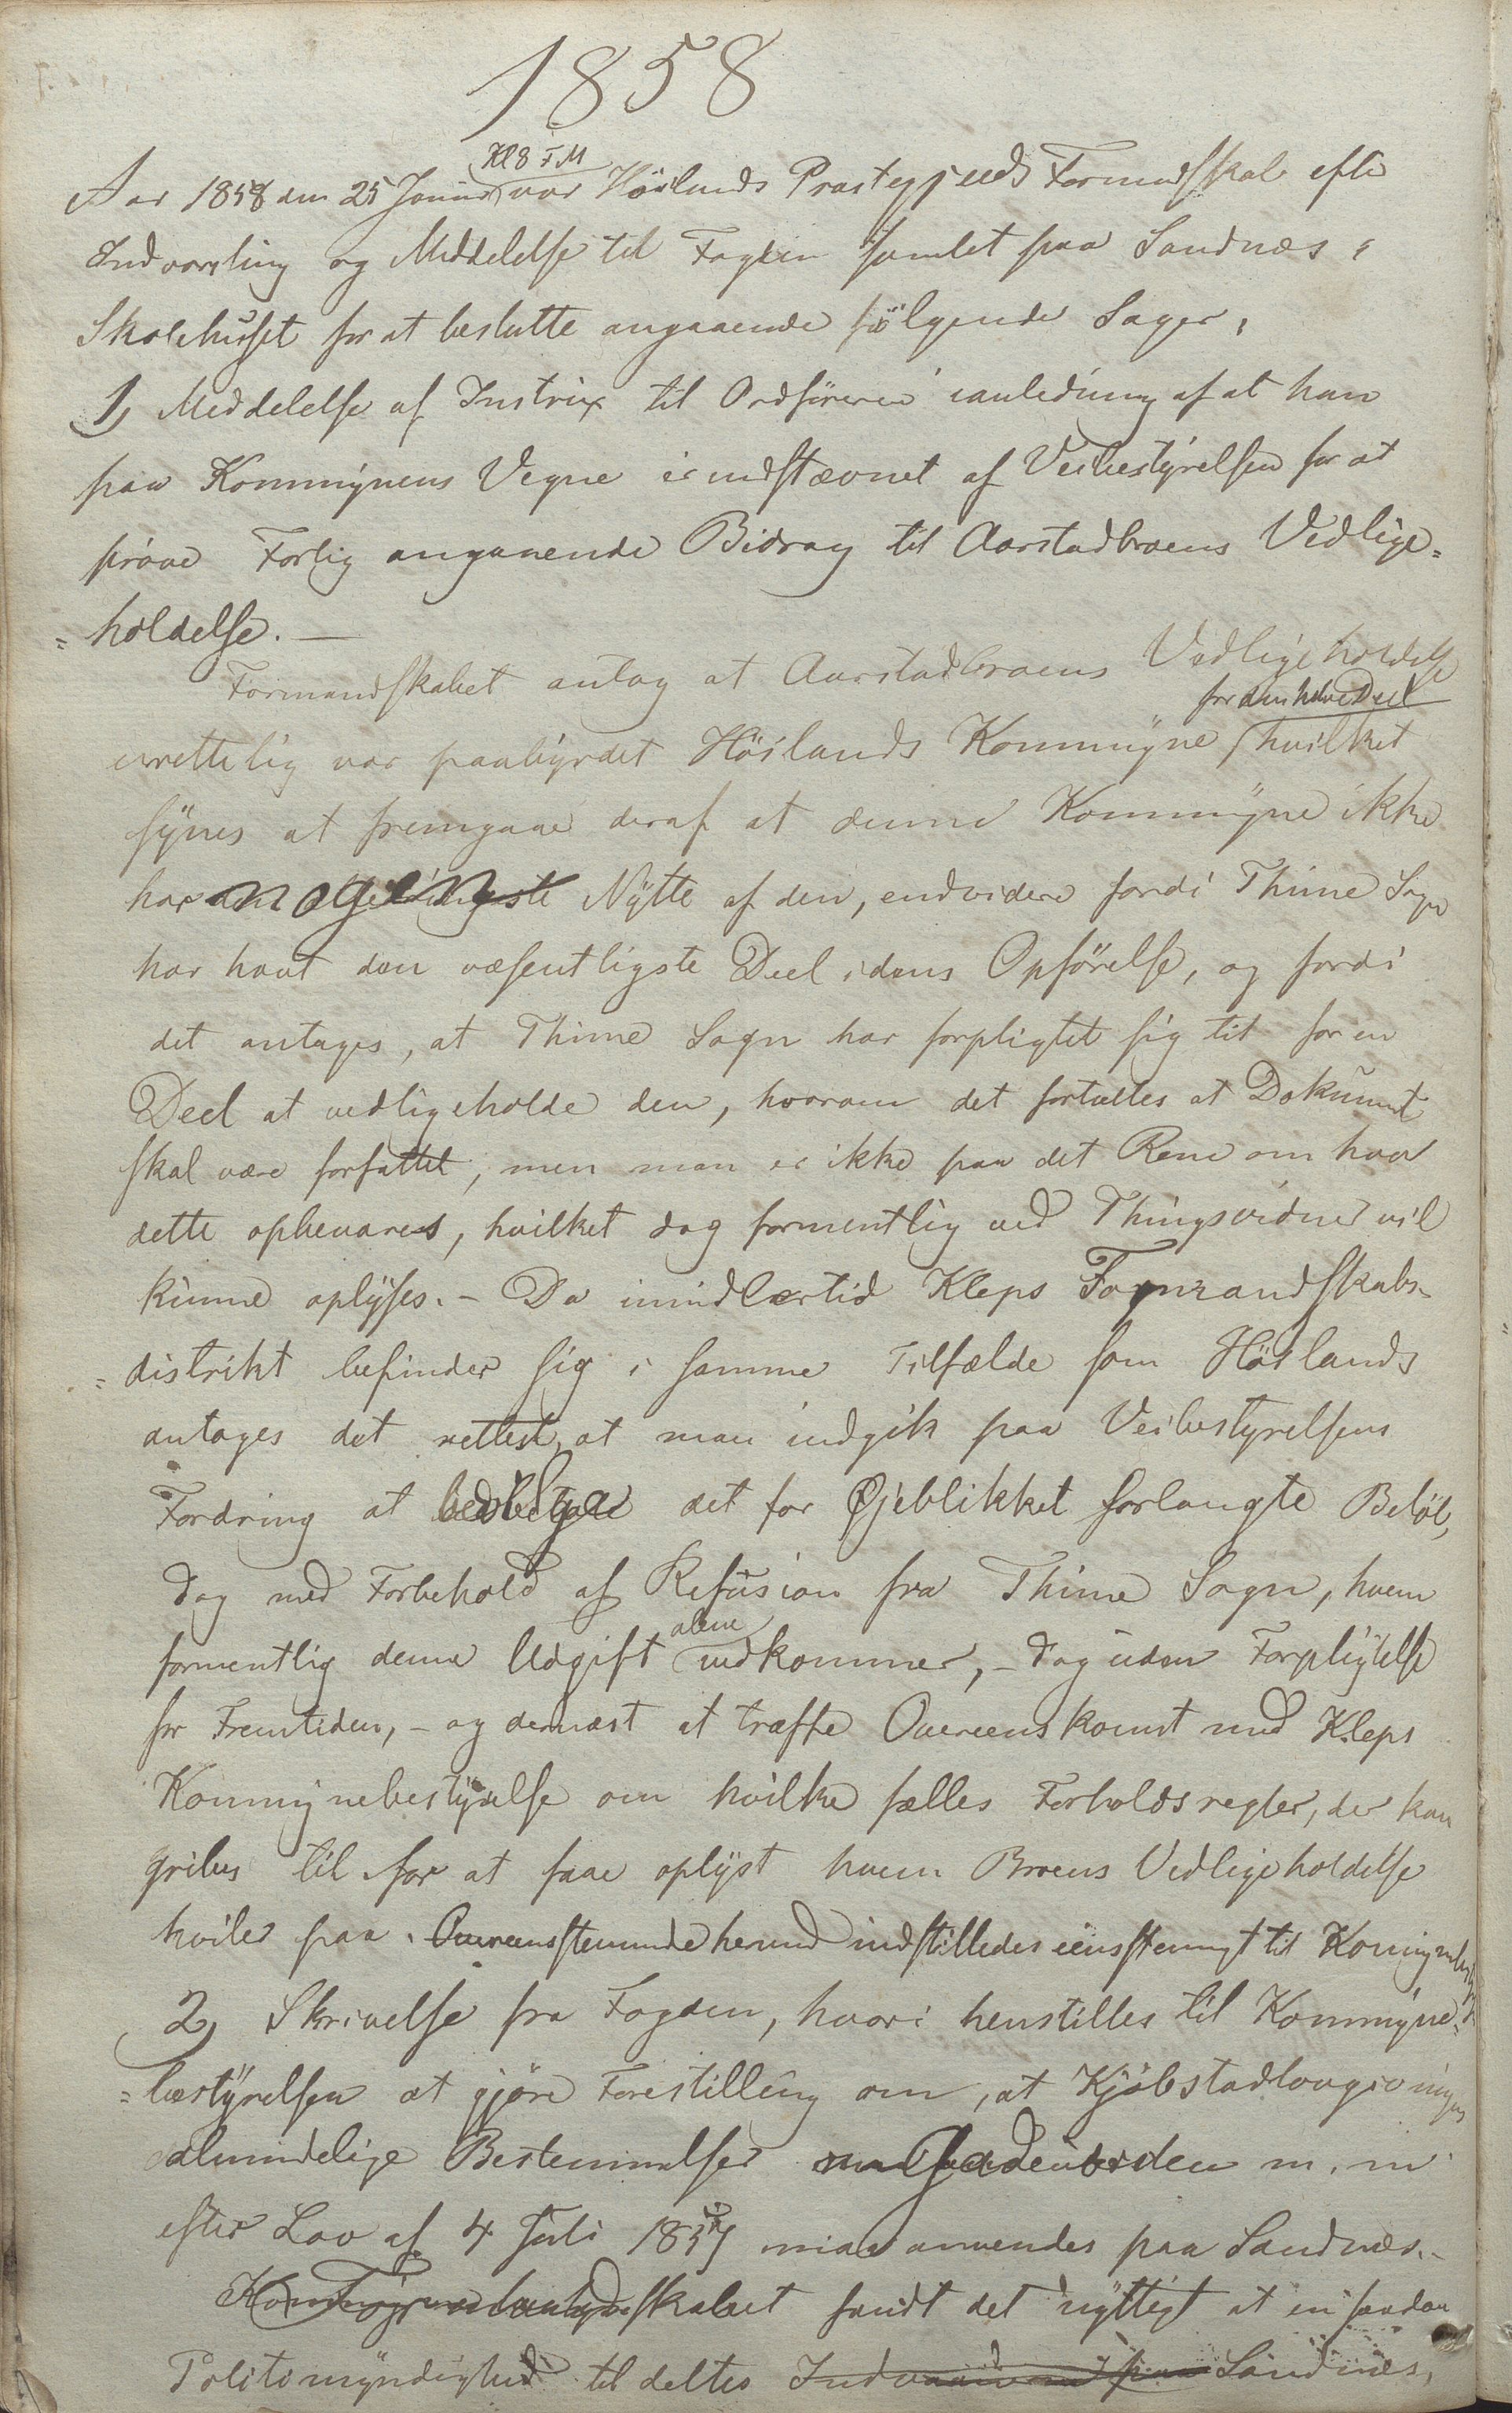 1858
Kl 8 FM
Aar 1858 den 25 Januar var Höilands Præstegjelds Formandskab efter
Indvarsling og Meddelelse til Fogden samlet paa Sandnæs
Skolehuset for at beslutte angaaende fölgende Sager:
1, Meddelelse af Instrux til Ordföreren i anledning af at han
paa Kommynens Vegne er indstævnet af Veibestyrelsen for at
pröve Forlig angaaende Bidrag til Aarstadbroens Vedlige=
=holdelse. —
Formandskabet antog at Aarstadbroens Vedligeholdelse
for den halve Deel
urettelig var paabyrdet Höilands Kommyne hvilket
synes at fremgaae deraf at denne Kommyne ikke
har nogen Nytte af den, endvidere fordi Thime Sogn
har havt den væsentligste Deel i dens Opförelse, og fordi
det antages, at Thime Sogn har forpligtet sig til for en
Deel at vedligeholde den, hvorom det fortælles at Dokument
skal være forfattet, men man er ikke paa det Rene om hvor
dette opbevares, hvilket dog formentlig ved Thingsvidner vil
kunne oplyses. – Da imidlertid Kleps Formandskabs=
=distrikt befinder sig i samme Tilfælde som Höilands
antages det rettest, at man indgik paa Veibestyrelsens
Fordring at det for Øjeblikket forlangte Belöb,
dog med Forbehold af Refusion fra Thime Sogn, hvem
alene
formentlig denne Udgift vedkommer, – dog uden Forpligtelse
for Fremtiden, – og dernæst at træffe Overeenskomst med Kleps
Kommynebestyrelse om hvilke fælles Forholdsregler, der kan
gribes til for at faae oplyst hvem Broens Vedligeholdelse
hviler paa. Overeensstemmende hermed indstilledes eensstemmigt til
2, Skrivelse fra Fogden, hvori henstilles til Kommyne=
=bestyrelsen at gjöre Forestilling om, at Kjöbstadlovgivningens
almindelige Bestemmelser om Gadeuorden m. m
efter Lov af 4 Juli 1857 maa anvendes paa Sandnæs. –
Formandskabet fandt det nyttigt at en saadan
Politimyndighed til deltes Sandnæs,